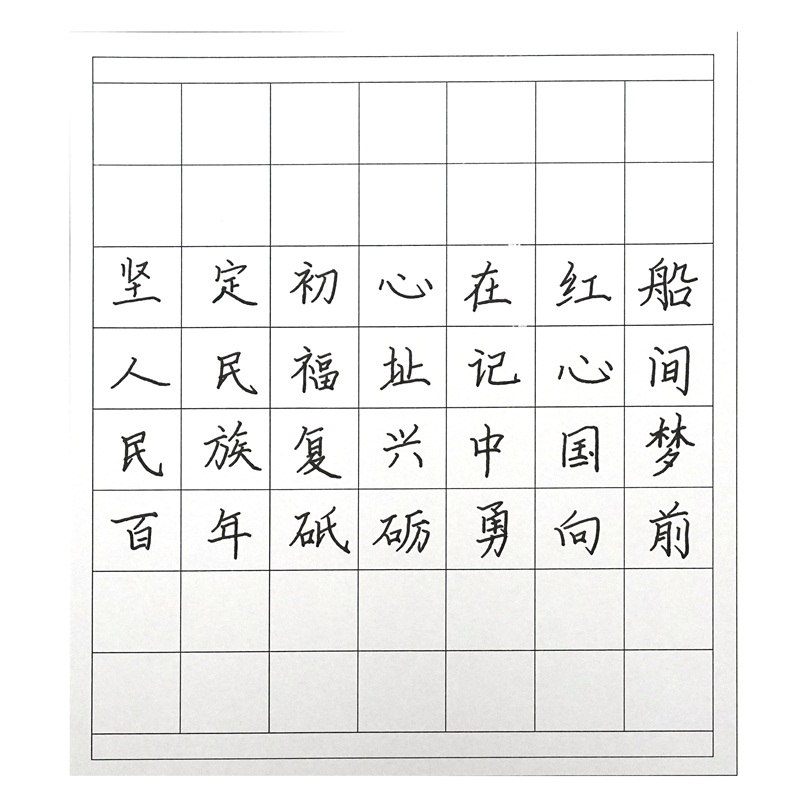 坚定初心在红船
人民福址记心间
民族复兴中国梦
百年砥砺勇向前